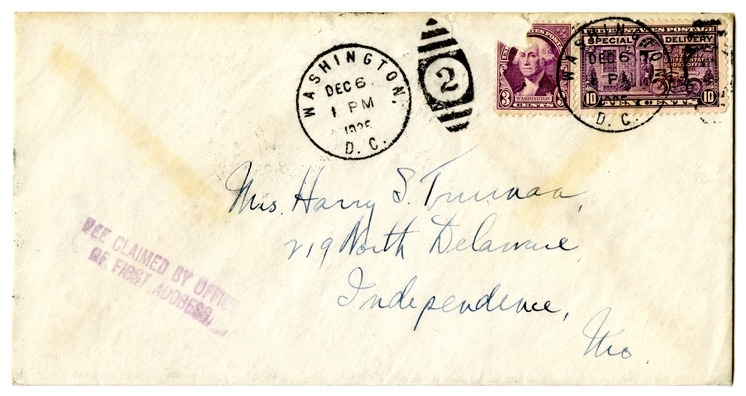 WASHINGTON,
DEC 6
1 PM
1935
D. C.
2
3 WASHINGTON 3
CENTS
UNITED STATES POSTAGE
SPECIAL DELIVERY
10 TEN CENTS 10
WASHINGTON
DEC 6
1 PM
D. C.
Mrs. Harry S. Truman,
219 North Delaware,
Independence,
Mo.
FEE CLAIMED BY OFFICE
OF FIRST ADDRESS